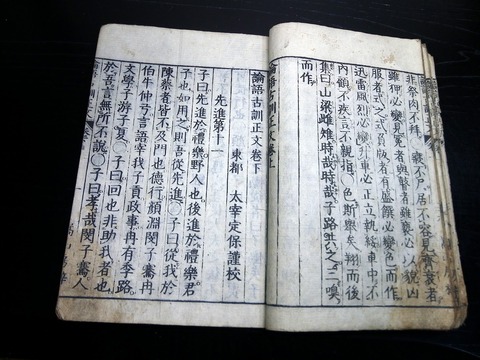 非祭肉不拜。寢不尸。居不容。見齊衰者。
雖狎必變。見冕者與瞽者。雖褻必以貌。凶
服者式之。式負版者。有盛饌必變色而作。
迅雷風烈必變。升車必正立執綏。車中不
內顧。不疾言。不親指。色斯舉矣。翔而後
集。曰山梁雌雉時哉時哉。子路共之。三嗅
而作。
論語古訓正文卷上
論語古訓正文卷下
東都 太宰定保謹校
先進第十一
子曰先進於禮樂野人也。後進於禮樂君
子也。如用之。則吾從先進。○子曰從我於
陳蔡者。皆不及門也。德行顏淵閔子騫冉
伯牛仲弓。言語宰我子貢。政事冉有季路
文學子游子夏。○子曰回也非助我者也。
於吾言無所不說。○子曰孝哉閔子騫。人